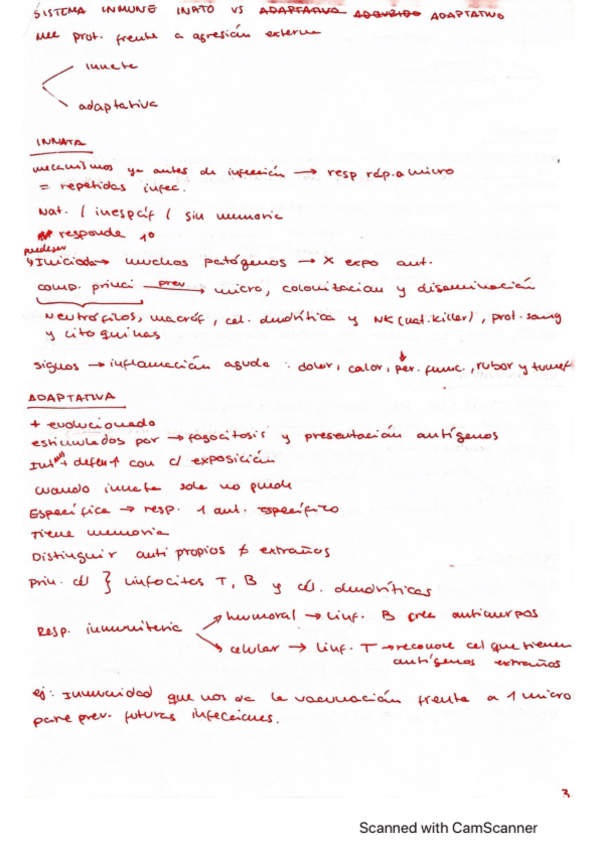 SISTEMA INMUNE INATO VS ADAPTATIVO ADQUIRIDO ADAPTATIVO
mec prot. frente a agresión externa
innata
adaptativa
INNATA
mecanismos ya antes de infección → resp ráp. a micro
= repetidas infec.
Nat. / inespcíf / sin memoria
responde 1º
Iniciada → muchos patógenos → x expo ant.
comp. princi prev → micro, colonitación y diseminación
Neutrófilos, macróf, cel. dendrítica y NK (nat. killer), prot. sang
y citoquinas
signos → inflamación aguda : dolor, calor, ↓ pér. func., rubor y tumef
ADAPTATIVA
+ evolucionado
estimulados por → fagocitosis y presentación antígenos
Int + defen ↑ con c/ exposición
cuando innata sola no puede
Específica → resp. 1 ant. específico
Tiene memoria
Distinguir anti propios ≠ extraños
Prin. cél } linfocitos T, B y cél. dendríticas
Resp. inmunitaria
humoral → linf. B crea anticuerpos
celular → linf. T → reconoce cel que tienen
antígenos extraños
ej: Inmunidad que nos da la vacunación frente a 1 micro
para prev. futuras infecciones.
3
Scanned with CamScanner